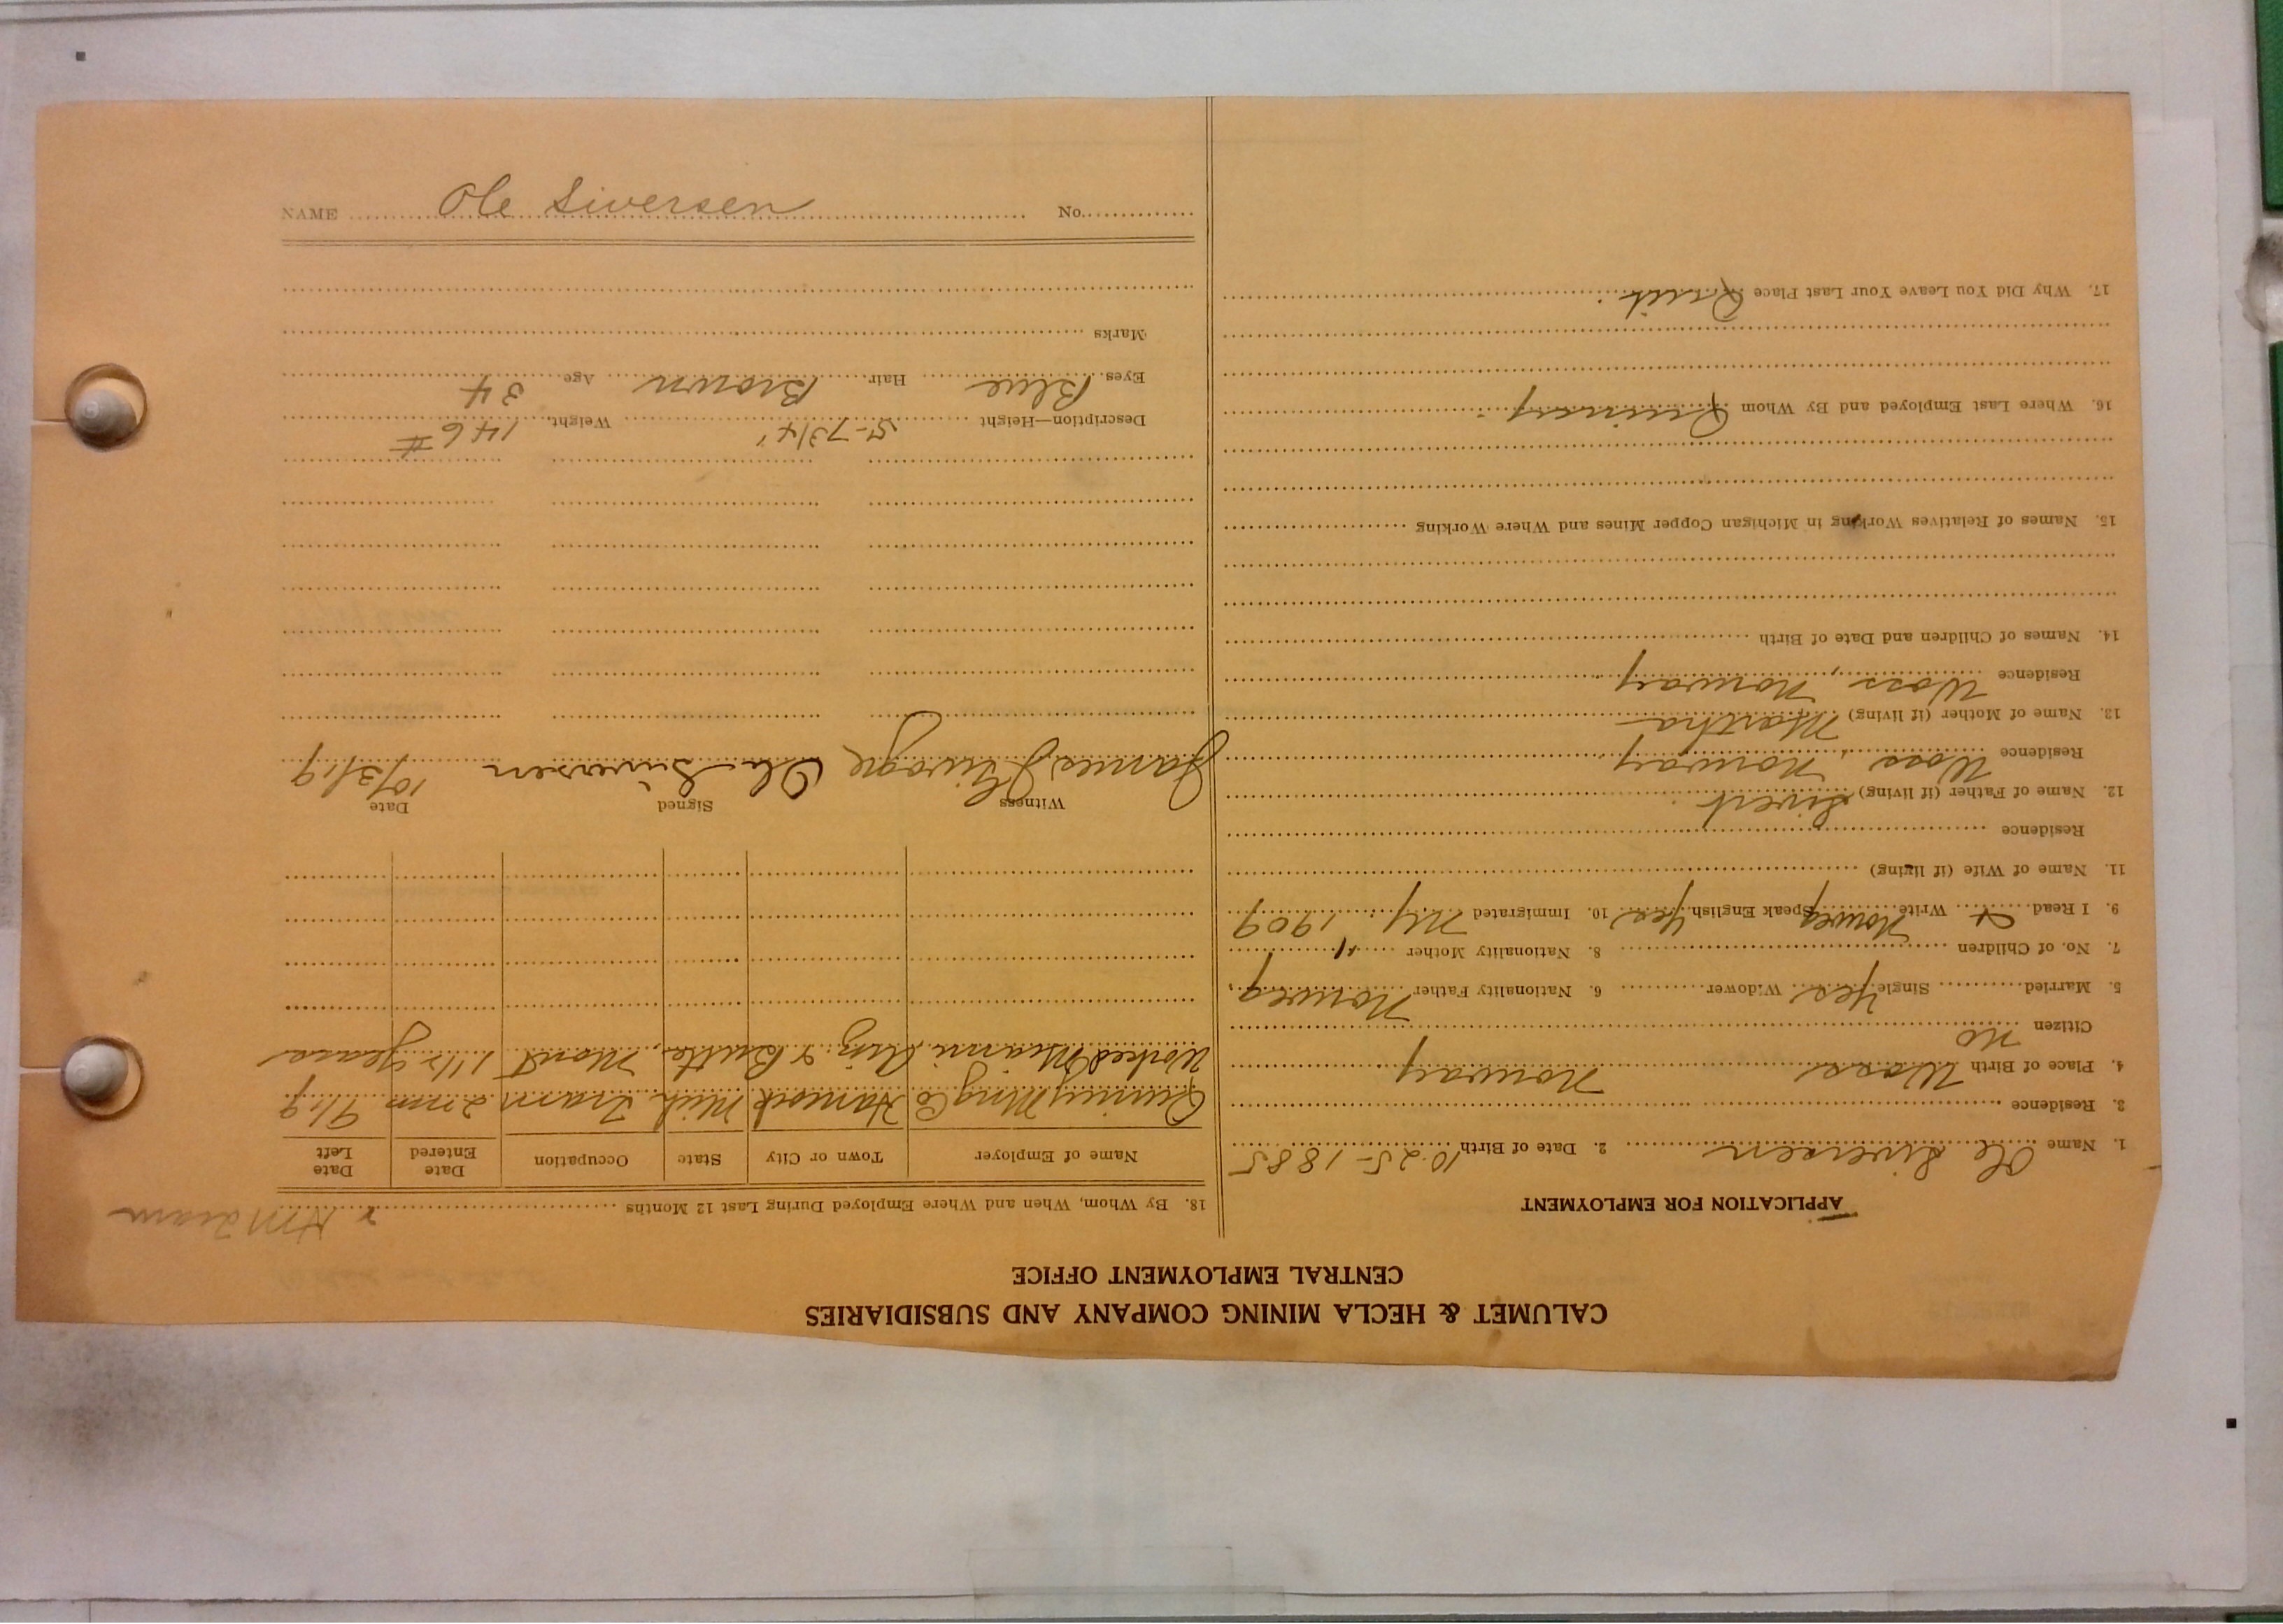 CALUMET & HECLA MINING COMPANY AND SUBSIDIARIES
CENTRAL EMPLOYMENT OFFICE
APPLICATION FOR EMPLOYMENT
1. Name Ole Siversen 2. Date of Birth 10-25-1885
3. Residence
4. Place of Birth Woss Norway
Citizen No
5. Married Single Yes Widower 6. Nationality Father Norweg
7. No. of Children 8. Nationality Mother "
9. I Read & Write Norweg Speak English Yes 10. Immigrated NY. 1909
11. Name of Wife (if living)
Residence
12. Name of Father (if living) Sivert
Residence Woss, Norway
13. Name of Mother (if living) Martha
Residence Woss, Norway
14. Names of Children and Date of Birth
15. Names of Relatives Working in Michigan Copper Mines and Where Working
16. Where Last Employed and By Whom Quincy
17. Why Did You Leave Your Last Place Quit
18. By Whom, When and Where Employed During Last 12 Months
Name of Employer Town or City State Occupation Date Entered Date Left
Quincy Mng Co Hancock Mich Tram 2 mo 9/19
Worked Miami Ariz. & Butte, Mont 1 1/2 years
Witness Signed Date
James Ole Siversen 10/3/19
Description—Height 5-7 3/4" Weight 146 #
Eyes Blue Hair Brown Age 34
Marks
NAME Ole Siversen No.